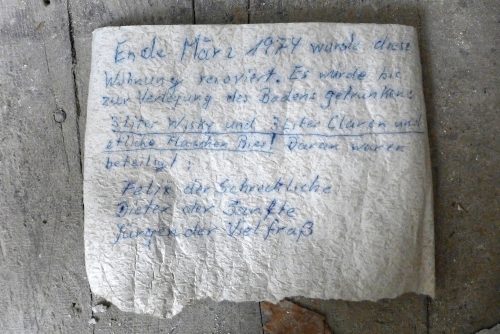 Ende März 1974 wurde diese
Wohnung renoviert. Es wurde bis
zur Verlegung des Bodens getrunken:
3 Liter Wisky und 3 Liter Claron und
etliche Flaschen Bier! Daran waren
beteiligt:
Felix der Schreckliche
Dieter der Sanfte
Jürgen der Vielfraß